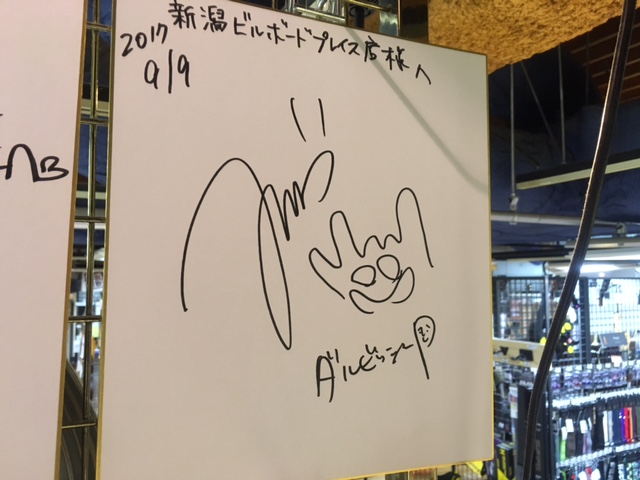 新潟ビルボードプレイス店様へ
2017
9/9
ダルビッシュP